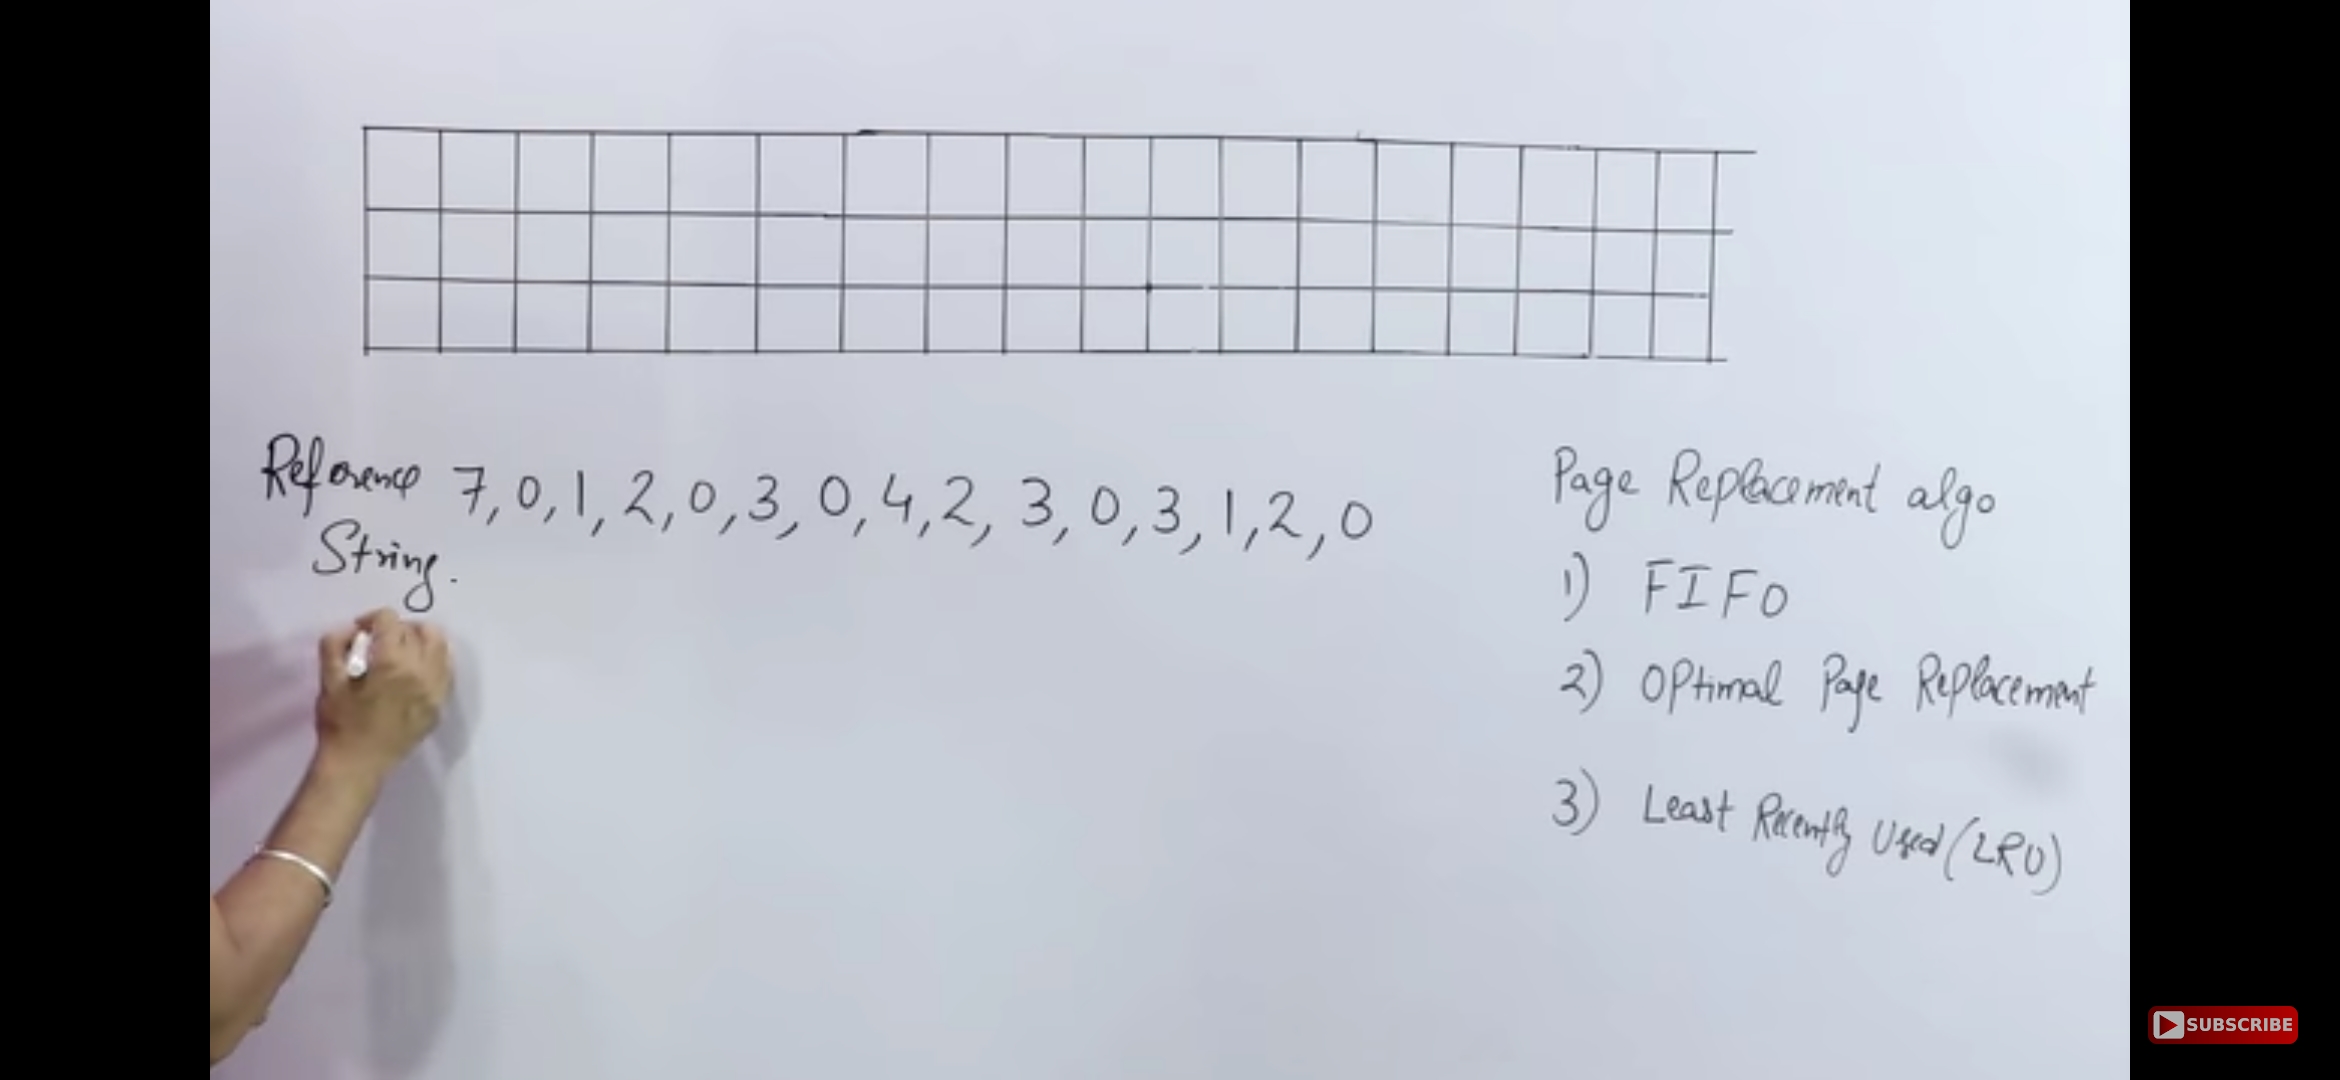 Reference 7, 0, 1, 2, 0, 3, 0, 4, 2, 3, 0, 3, 1, 2, 0
String.
Page Replacement algo
1) FIFO
2) Optimal Page Replacement
3) Least Recently Used (LRU)
SUBSCRIBE